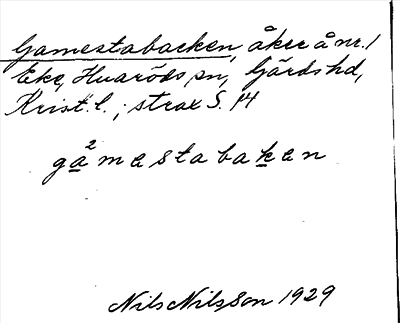 Gamestabacken, åker å nr. 1
Eke, Huaröds sn, Gärds hd,
Krist. l.; strax S. 14
ga²mestabaken
Nils Nilsson 1929